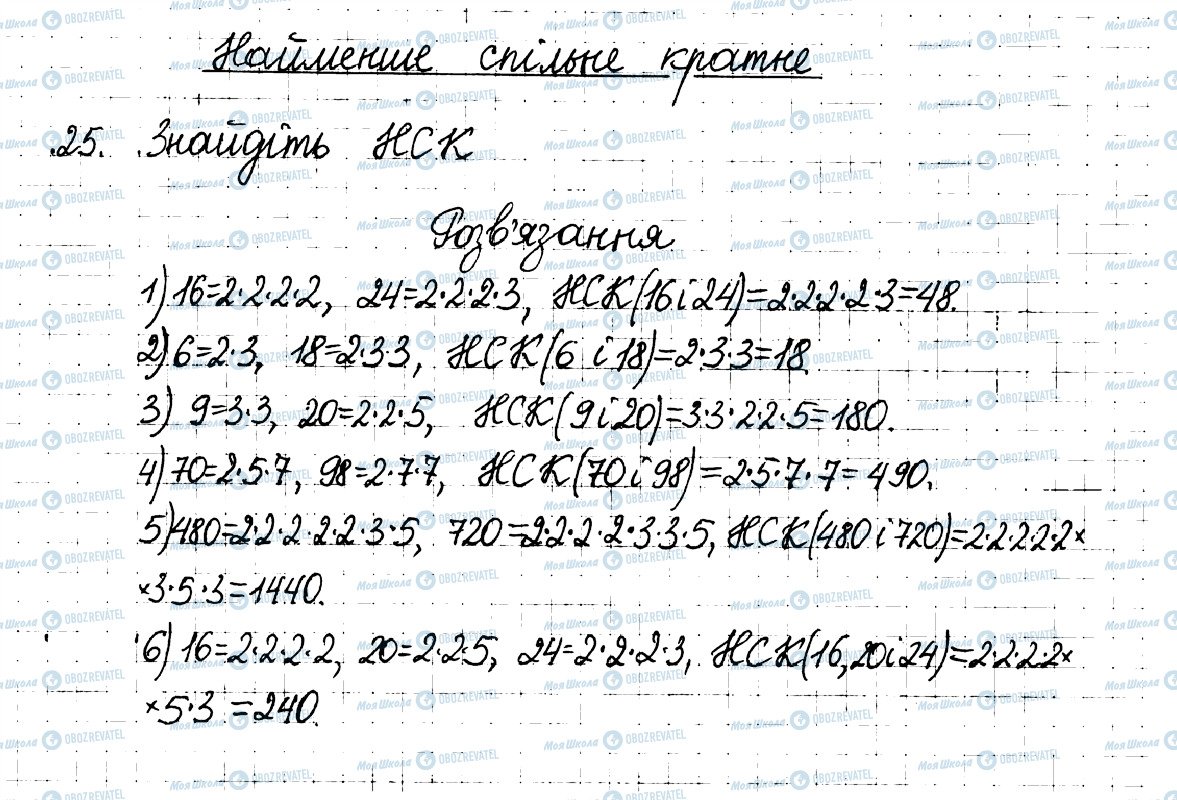 Найменше спільне кратне
25. Знайдіть НСК
Розв'язання
1) 16=2·2·2·2, 24=2·2·2·3, НСК(16 і 24)=2·2·2·2·3=48.
2) 6=2·3, 18=2·3·3, НСК(6 і 18)=2·3·3=18.
3) 9=3·3, 20=2·2·5, НСК(9 і 20)=3·3·2·2·5=180.
4) 70=2·5·7, 98=2·7·7, НСК(70 і 98)=2·5·7·7=490.
5) 480=2·2·2·2·2·3·5, 720=2·2·2·2·3·3·5, НСК(480 і 720)=2·2·2·2·2×
×3·5·3=1440.
6) 16=2·2·2·2, 20=2·2·5, 24=2·2·2·3, НСК(16, 20 і 24)=2·2·2·2×
×5·3=240.
МояШкола OBOZREVATEL